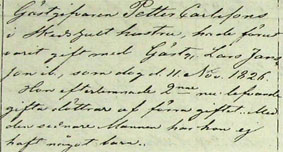 Gästgifvaren Petter Carlssons
i Skedshult hustru, hade förut
varit gift med Gästg. Lars Jans
son d., som dog d. 11. Nov. 1826.
Hon efterlemnade 2.ne nu lefvande
gifta döttrar af förra giftet. Med
den sednare Mannen har hon ej
haft något barn.